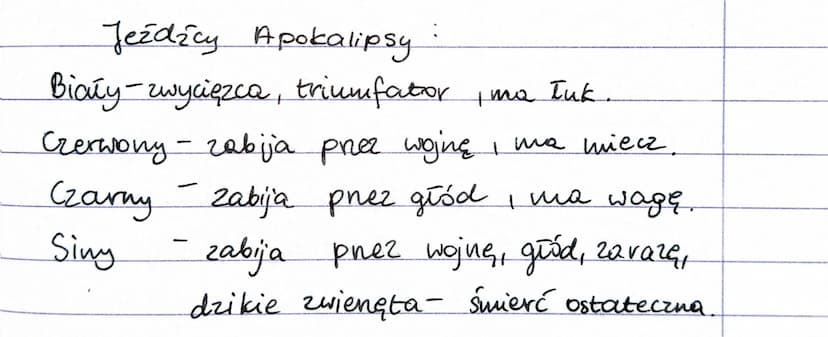 Jeźdźcy Apokalipsy :
Biały – zwycięzca, triumfator, ma łuk.
Czerwony – zabija przez wojnę, ma miecz.
Czarny – zabija przez głód, ma wagę.
Siny – zabija przez wojnę, głód, zarazę,
dzikie zwierzęta – śmierć ostateczna.